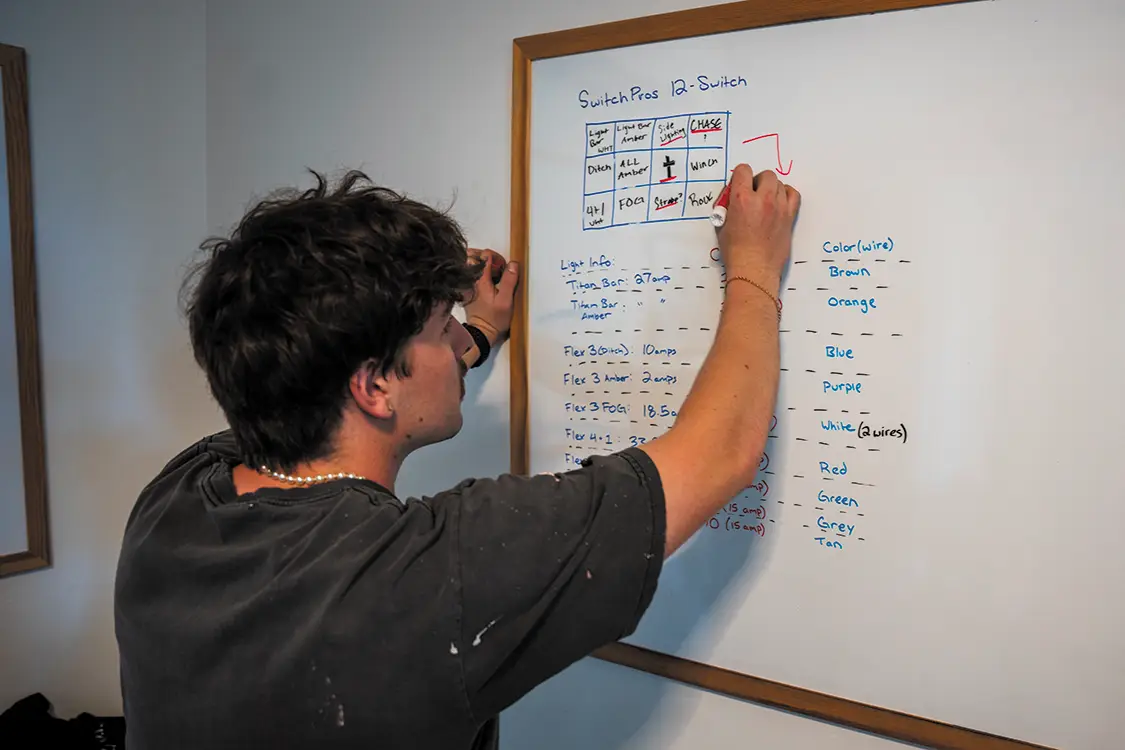 SwitchPros 12-Switch
Light Bar WHT Light Bar Amber Side Lighting CHASE ?
Ditch ALL Amber Winch
4+1 WHT FOG Strobe? Rock
Light Info: Color(wire)
Titan Bar: 27amp Brown
Titan Bar Amber: " " Orange
Flex 3(Ditch): 10amps Blue
Flex 3 Amber: 2amps Purple
Flex 3 FOG: 18.5a White (2 wires)
Flex 4+1: 33 Red
Flex amp) Green
(15 amp) Grey
10 (15 amp) Tan